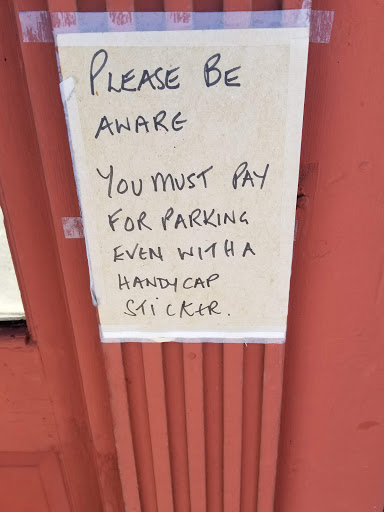 PLEASE BE
AWARE
YOU MUST PAY
FOR PARKING
EVEN WITH A
HANDYCAP
STICKER.